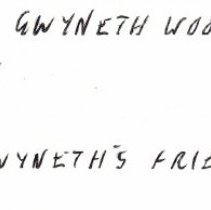 GWYNETH WOO
WYNETH'S FRIE